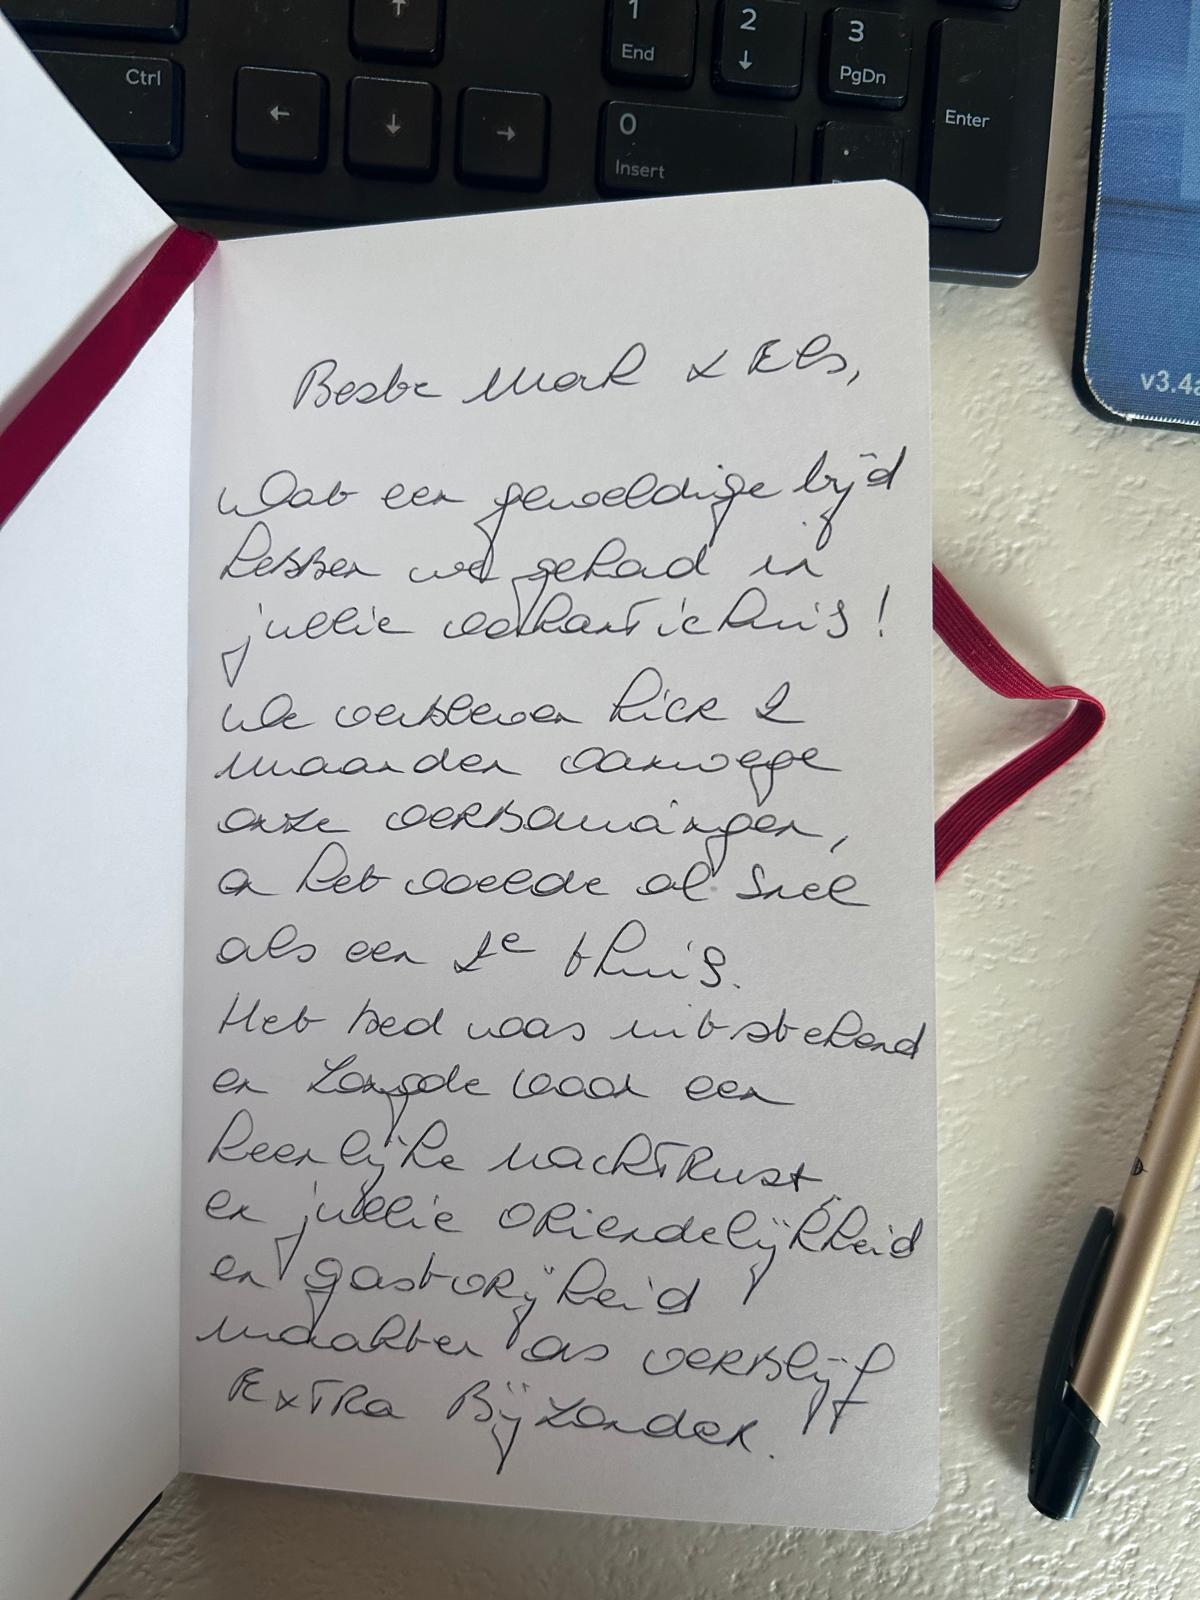 ↑
1
End
2
↓
3
PgDn
Ctrl
←
↓
→
0
Insert
.
Enter
v3.4a
Beste Mark & Els,
Wat een geweldige tijd
hebben we gehad in
jullie vakantiehuis!
We verbleven hier 2
maanden vanwege
onze verbouwingen,
en het voelde al snel
als een 2e thuis.
Het bed was uitstekend
en zorgde voor een
heerlijke nachtrust,
en jullie vriendelijkheid
en gastvrijheid
maakten ons verblijf
Extra Bijzonder.